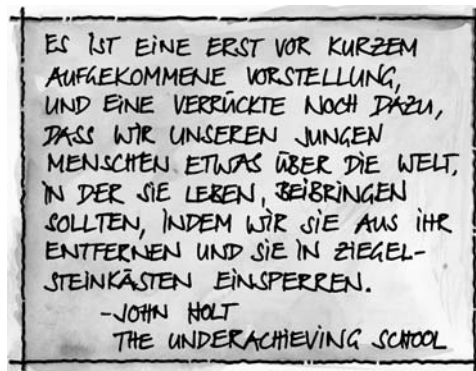 ES IST EINE ERST VOR KURZEM
AUFGEKOMMENE VORSTELLUNG,
UND EINE VERRÜCKTE NOCH DAZU,
DASS WIR UNSEREN JUNGEN
MENSCHEN ETWAS ÜBER DIE WELT,
IN DER SIE LEBEN, BEIBRINGEN
SOLLTEN, INDEM WIR SIE AUS IHR
ENTFERNEN UND SIE IN ZIEGEL-
STEINKÄSTEN EINSPERREN.
-JOHN HOLT
THE UNDERACHIEVING SCHOOL